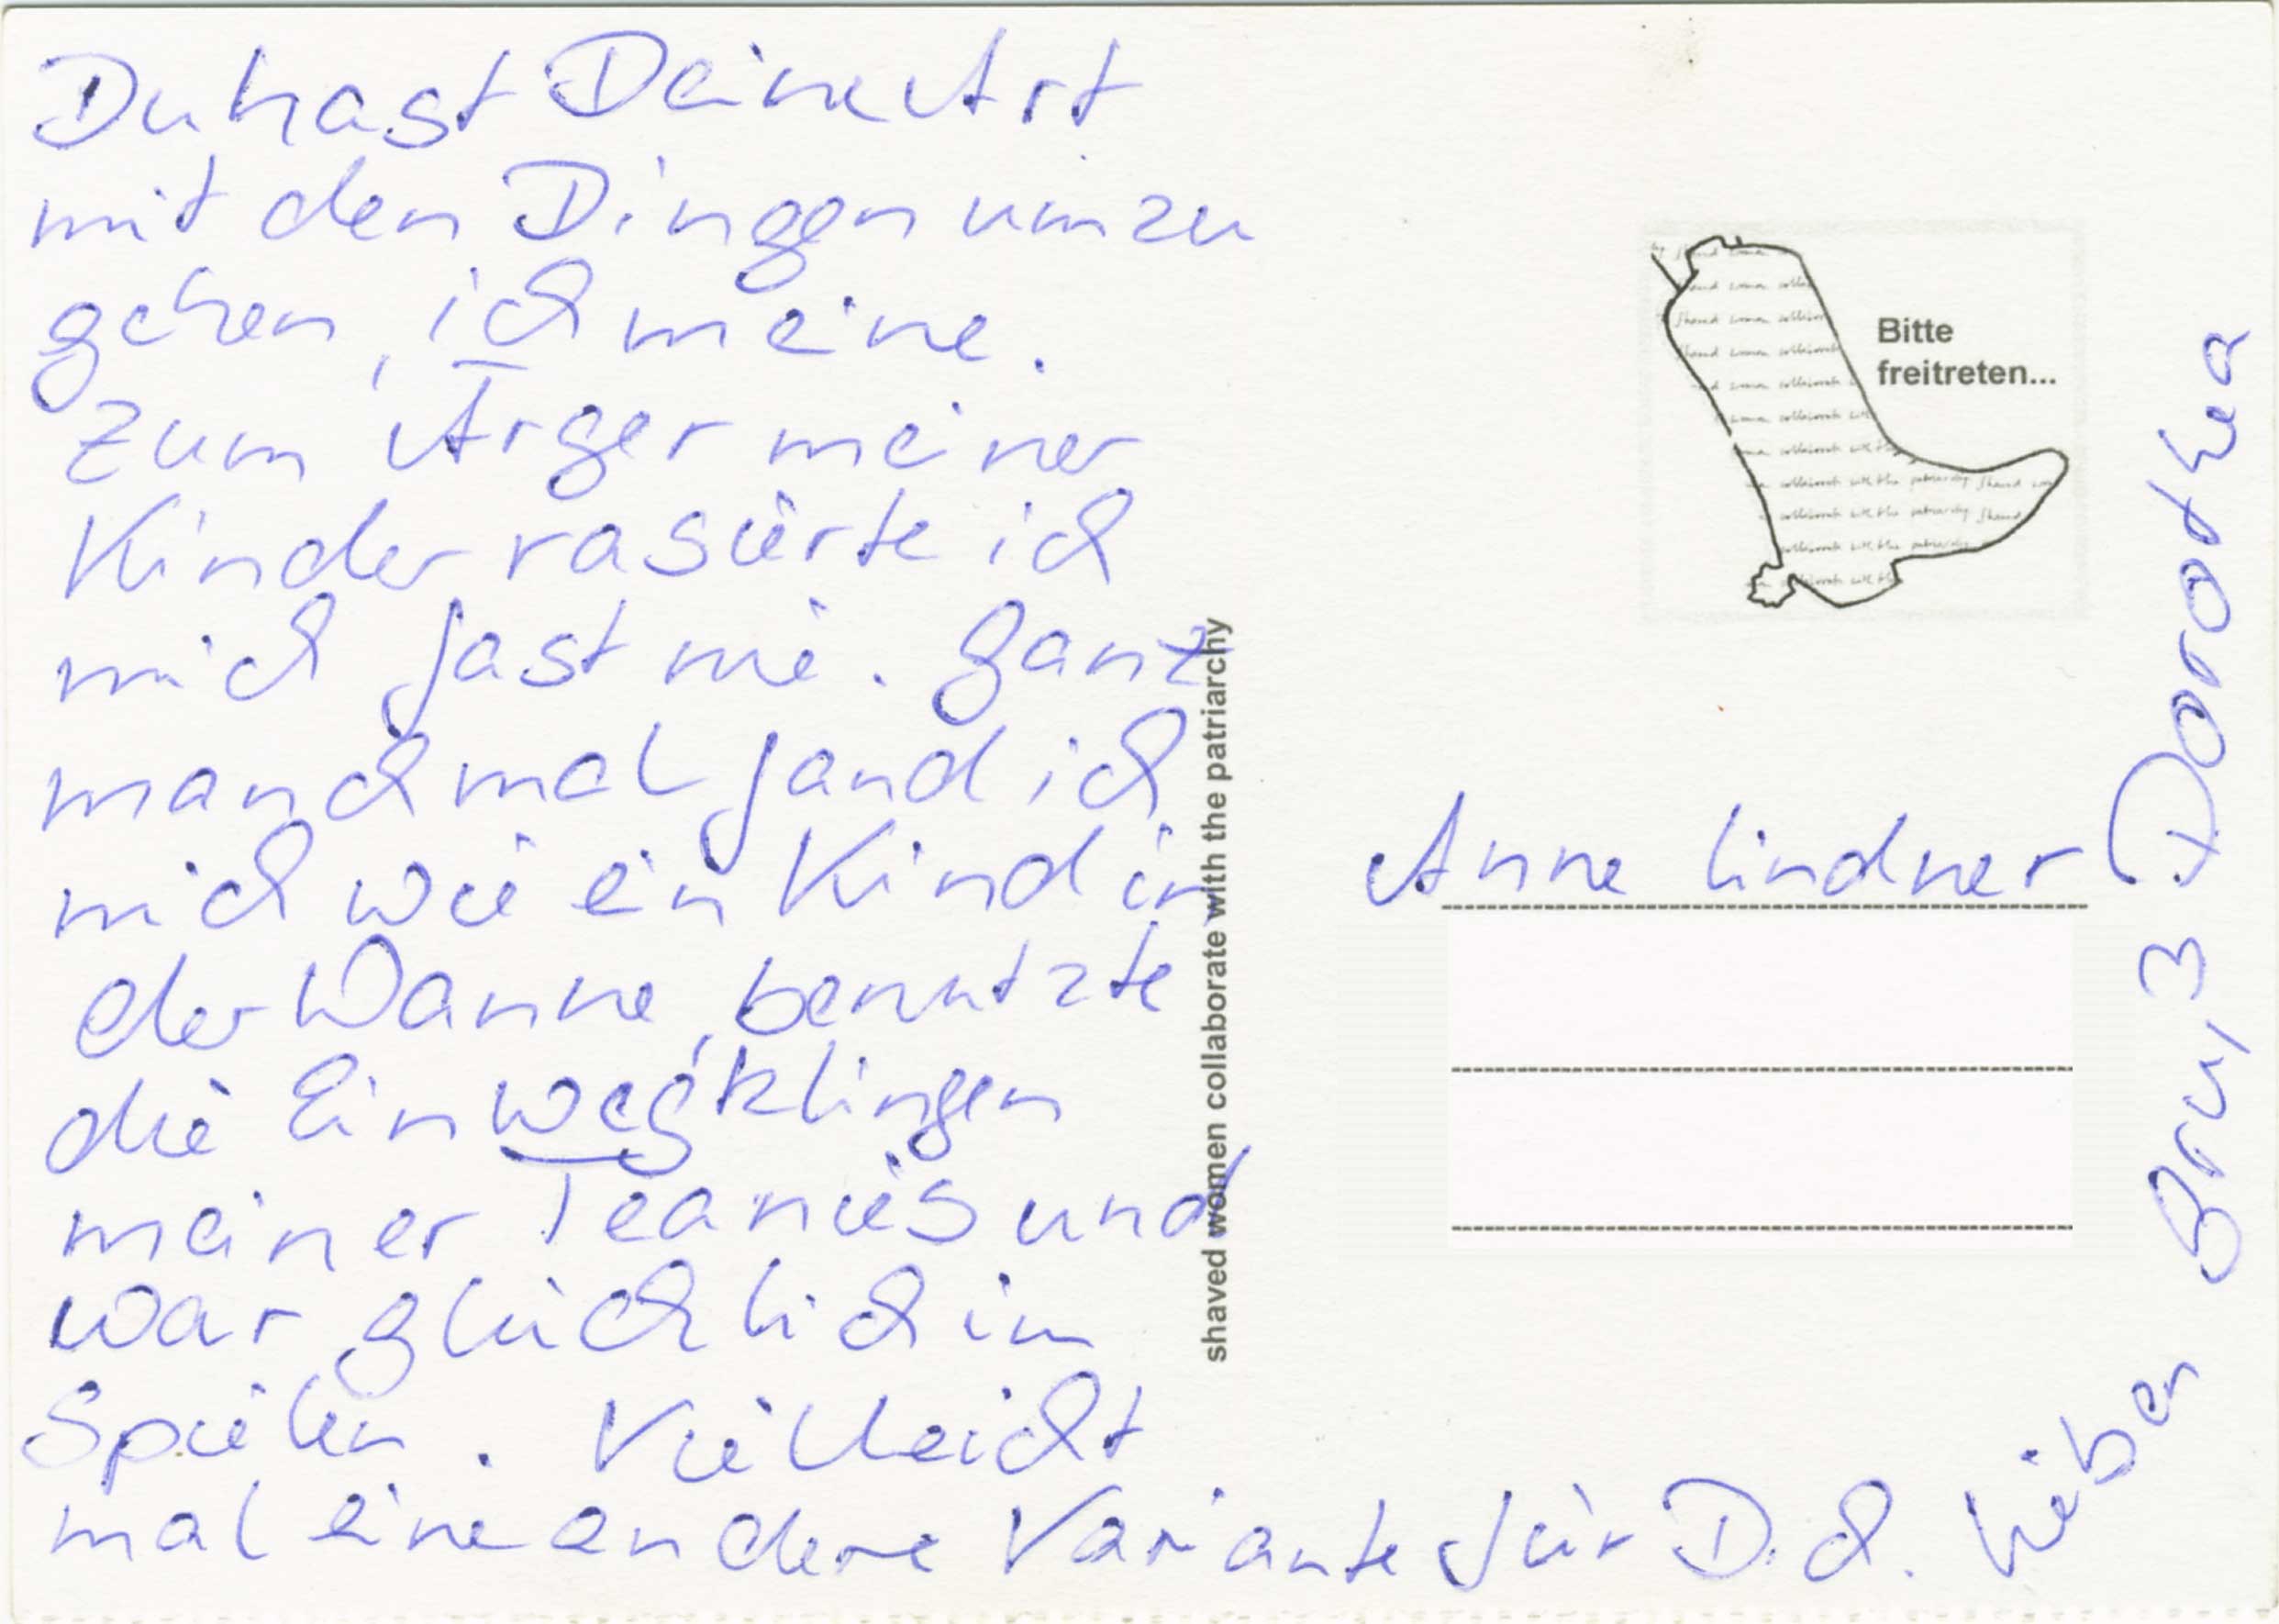 Du hast Deine Art
mit den Dingen umzu
gehen, ich meine.
Zum Ärger meiner
Kinder rasierte ich
mich fast nie. Ganz
manchmal fand ich
mich wie ein Kind in
der Wanne, benutzte
die Einwegklingen
meiner Teanies und
war glücklich im
Spielen. Vielleicht
mal eine andere Variante für Dich. Lieben Gruß Dorothea
shaved women collaborate with the patriarchy
Bitte
freitreten...
Anne Lindner